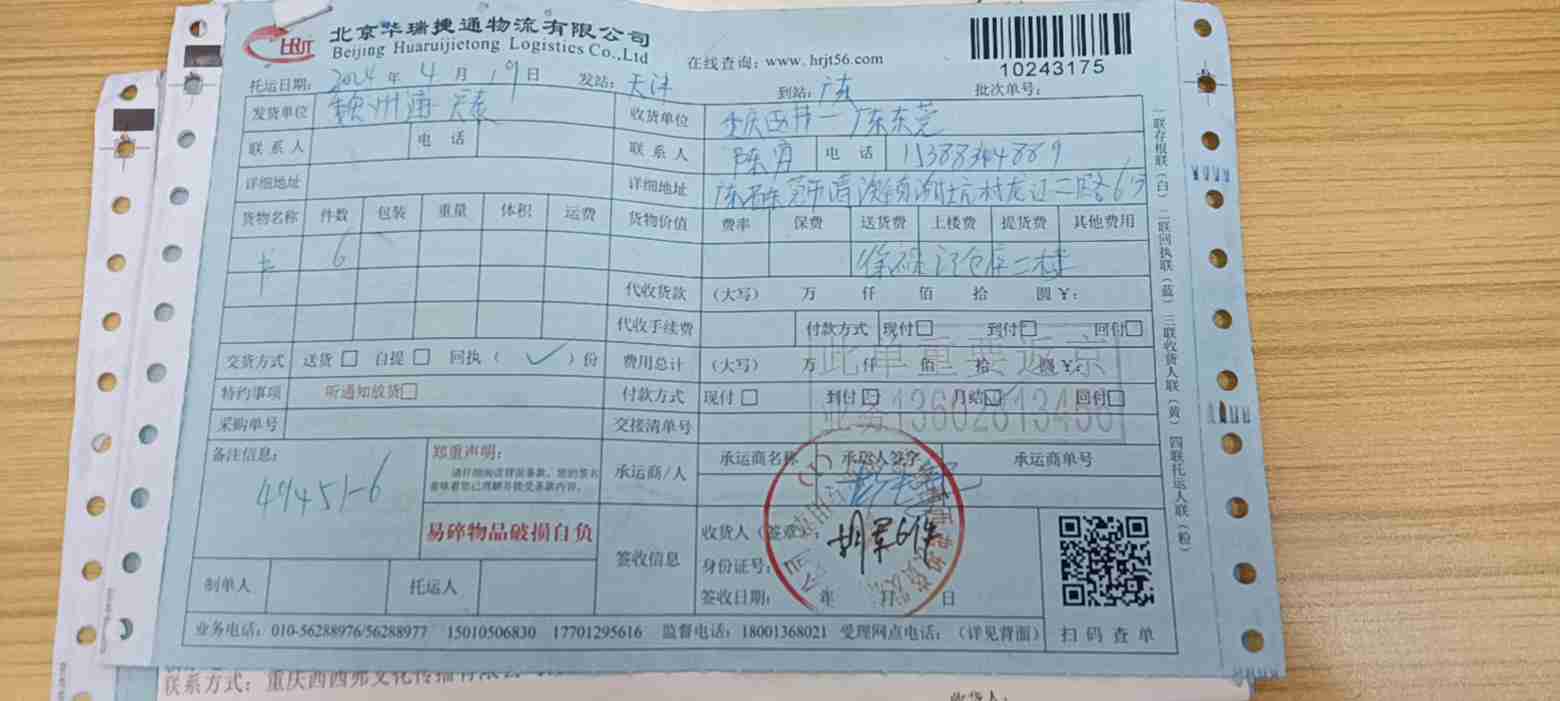 HRJT 北京华瑞捷通物流有限公司
Beijing Huaruijietong Logistics Co.,Ltd
在线查询：www.hrjt56.com
10243175
托运日期：2024年4月19日 发站：天津 到站：广东 批次单号：
发货单位 收货单位 重庆西 一广东东莞
联系人 电话 联系人 陈 电话
详细地址 详细地址 广东 东莞市清溪镇 村龙 二路6号
货物名称 件数 包装 重量 体积 运费 货物价值 费率 保费 送货费 上楼费 提货费 其他费用
卡 6 仓库二楼
代收货款 （大写） 万 仟 佰 拾 圆￥：
代收手续费 付款方式 现付 到付 回付
此单重要返京
交货方式 送货 自提 回执（ ✓ ）份 费用总计 （大写） 万 仟 佰 拾 圆￥：
特约事项 听通知放货 付款方式 现付 到付 月结 回付
采购单号 交接清单号
备注信息：
47451-6
郑重声明：
请仔细阅读背面条款，您的签名
意味着您已理解并接受条款内容。
易碎物品破损自负
承运商/人 承运商名称 承运人签字 承运商单号
签收信息 收货人（签章）： 胡军6件
身份证号：
签收日期： 年 月 日
制单人 托运人
扫码查单
业务电话：010-56288976/56288977 15010506830 17701295616 监督电话：18001368021 受理网点电话：（详见背面）
一联存根联（白） 二联回执联（蓝） 三联收货人联（黄） 四联托运人联（粉）
联系方式：重庆西西弗文化传播有限
收货人：